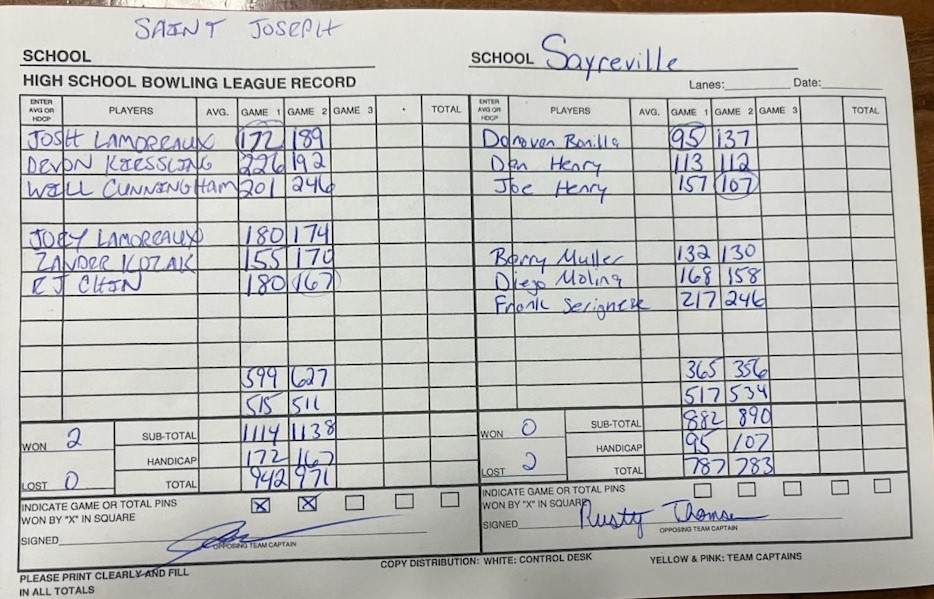 SAINT JOSEPH
SCHOOL
SCHOOL Sayreville
HIGH SCHOOL BOWLING LEAGUE RECORD
Lanes: Date:
ENTER AVG OR HDCP PLAYERS AVG. GAME 1 GAME 2 GAME 3 TOTAL
ENTER AVG OR HDCP PLAYERS AVG. GAME 1 GAME 2 GAME 3 TOTAL
JOSH LAMOREAUX 172 189
DEVON KIESSLING 226 192
WILL CUNNINGHam 201 246
JOEY LAMOREAUX 180 174
ZANDER KOZAK 155 170
RJ CHIN 180 167
599 627
515 511
WON 2 SUB-TOTAL 1114 1138
HANDICAP 172 167
LOST 0 TOTAL 942 971
INDICATE GAME OR TOTAL PINS
WON BY "X" IN SQUARE X X
SIGNED
OPPOSING TEAM CAPTAIN
Donovan Bonilla 95 137
Dan Henry 113 112
Joe Henry 157 107
Barry Muller 132 130
Diego Molina 168 158
Frank Serignese 217 246
365 356
517 534
SUB-TOTAL 882 890
WON 0 HANDICAP 95 107
LOST 2 TOTAL 787 783
INDICATE GAME OR TOTAL PINS
WON BY "X" IN SQUARE
SIGNED Rusty Thomsen
OPPOSING TEAM CAPTAIN
PLEASE PRINT CLEARLY AND FILL
IN ALL TOTALS
COPY DISTRIBUTION: WHITE: CONTROL DESK YELLOW & PINK: TEAM CAPTAINS